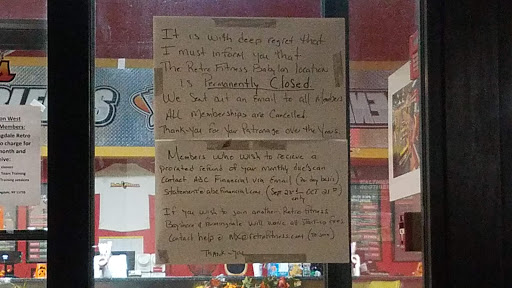 It is with deep regret that
I must inform you that
The Retro Fitness Babylon location
is Permanently Closed.
We Sent out an Email to all members
ALL memberships are Cancelled
Thank-you for Your Patronage over the Years.
Members who wish to recieve a
prorated refund of your monthly dues can
Contact ABC Financial via Email
Statements@abcfinancial.com
only
If you wish to join another Retro Fitness
Bayshore & Farmingdale will waive all start-up fees
Contact help@
Thank-you
on West
Members:
ngdale Retro
o charge for
month and